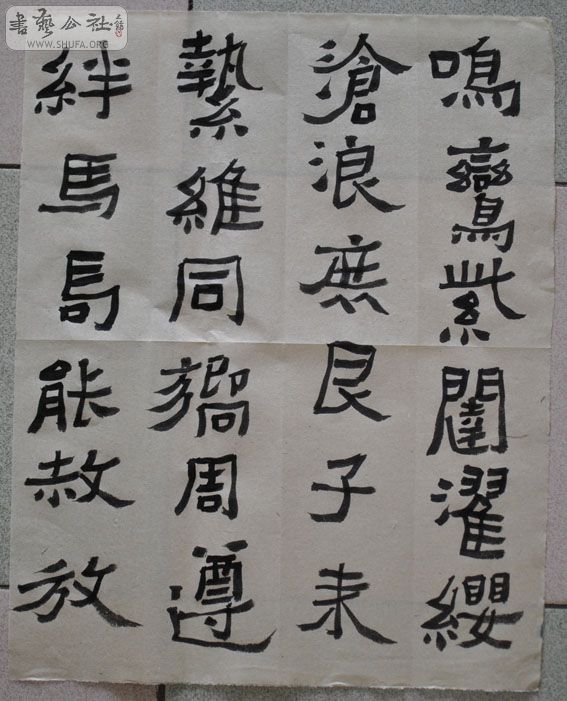 鳴鸞紫闥濯纓
滄浪庶艮子
縶維同嚮周遵
絆馬能赦放
書藝公社
WWW.SHUFA.ORG